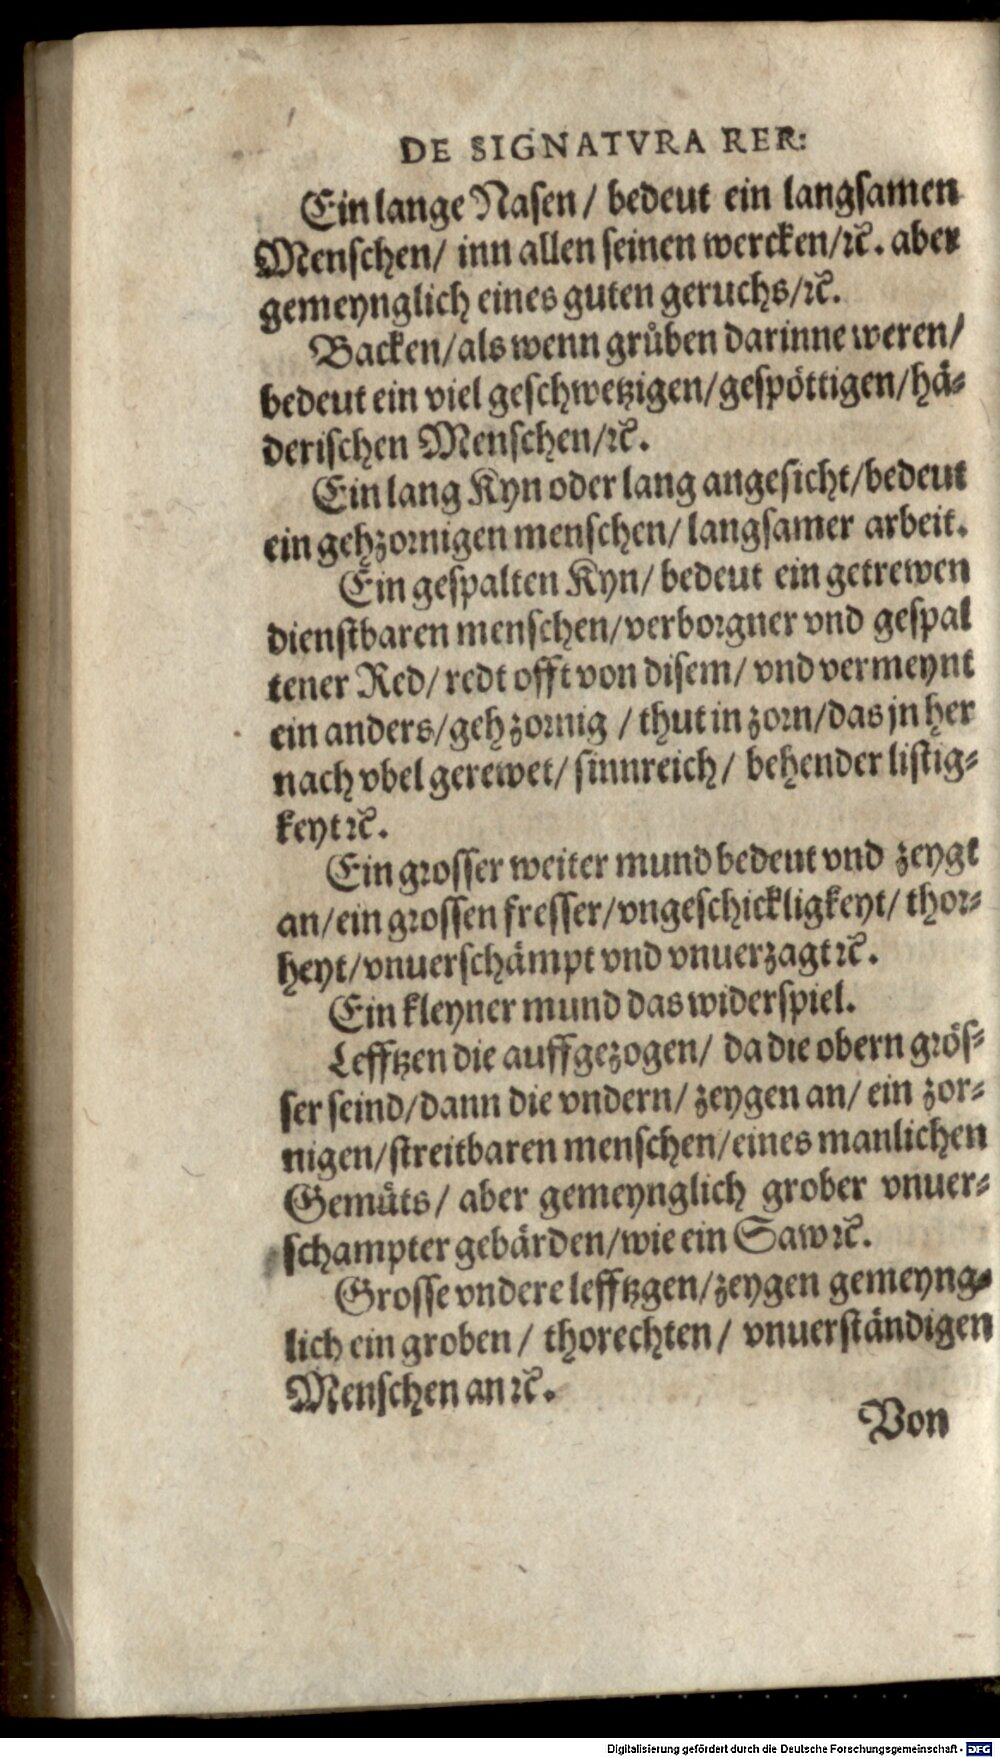 DE SIGNATVRA RER:
Ein lange Nasen / bedeut ein langsamen
Menschen/ inn allen seinen wercken/ꝛc̃. aber
gemeynglich eines guten geruchs/ꝛc̃.
Backen/als wenn grůben darinne weren/
bedeut ein viel geschwetzigen/gespöttigen/hä⸗
derischen Menschen/ꝛc̃.
Ein lang Kyn oder lang angesicht/bedeut
ein gehzornigen menschen/ langsamer arbeit.
Ein gespalten Kyn/ bedeut ein getrewen
dienstbaren menschen/verborgner vnd gespal
tener Red/ redt offt von disem/ vnd vermeynt
ein anders/geh zornig / thut in zorn/das jn her
nach vbel gerewet/ sinnreich/ behender listig⸗
keyt ꝛc̃.
Ein grosser weiter mund bedeut vnd zeygt
an/ein grossen fresser/vngeschickligkeyt/ thor⸗
heyt/vnuerschämpt vnd vnuerzagt ꝛc̃.
Ein kleyner mund das widerspiel.
Lefftzen die auffgezogen/ da die obern grös⸗
ser seind/dann die vndern/ zeygen an/ ein zor⸗
nigen/streitbaren menschen/eines manlichen
Gemüts/ aber gemeynglich grober vnuer⸗
schampter gebärden/wie ein Saw ꝛc̃.
Grosse vndere lefftzgen/zeygen gemeyng⸗
lich ein groben / thorechten/ vnuerständigen
Menschen an ꝛc̃.
Von
Digitalisierung gefördert durch die Deutsche Forschungsgemeinschaft - DFG